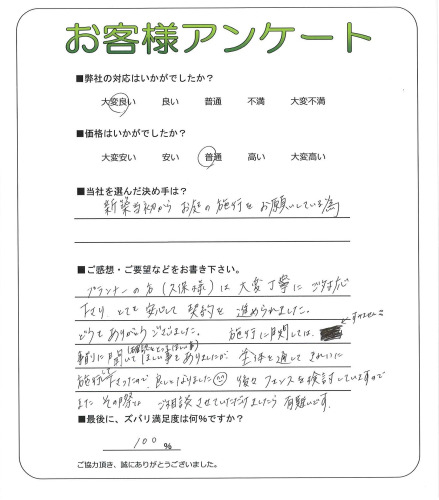 お客様アンケート
■弊社の対応はいかがでしたか?
大変良い 良い 普通 不満 大変不満
■価格はいかがでしたか?
大変安い 安い 普通 高い 大変高い
■当社を選んだ決め手は?
新築当初からお庭の施行をお願いしている為
■ご感想・ご要望などをお書き下さい。
プランナーの方(久保様)は大変丁寧にご対応
下さり とても安心して契約を進められました。
どうもありがとうございました。 施行に関しては、 ←すみません
事前に聞いてほしい事もありましたが 全体を通して きれいに
施行して下さったので、良しとなりました 後々フェンスを検討していますので
また その際は ご相談させていただけましたら 有難いです。
■最後に、ズバリ満足度は何%ですか?
100 %
ご協力頂き、誠にありがとうございました。